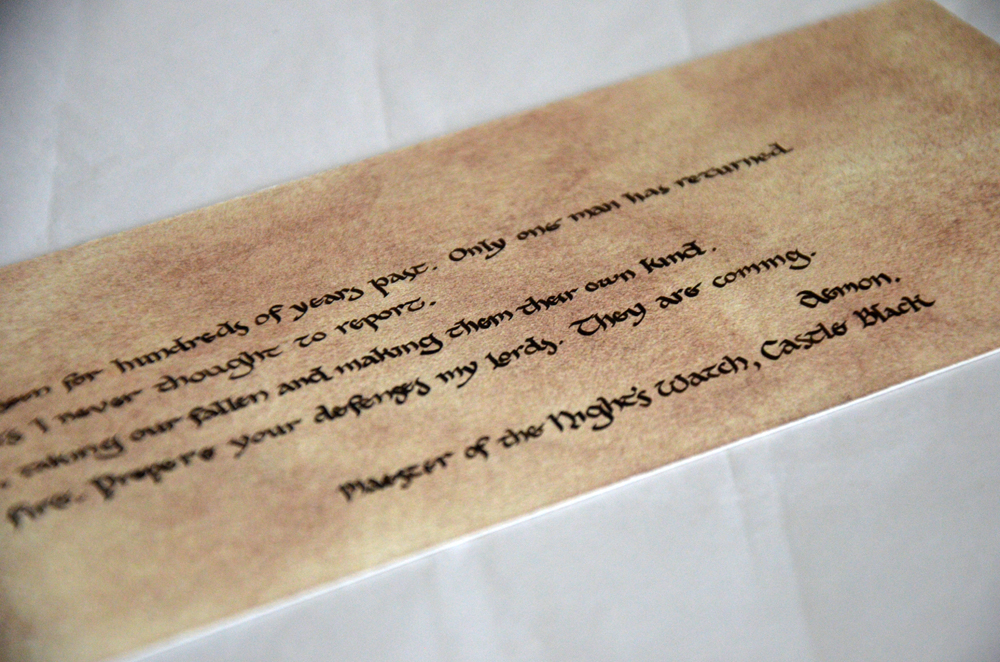 for hundreds of years past. Only one man has returned.
I never thought to report.
taking our fallen and making them their own kind.
fire. Prepere your defenses my lords. They are coming.
Aemon.
Maester of the Night's Watch, Castle Black